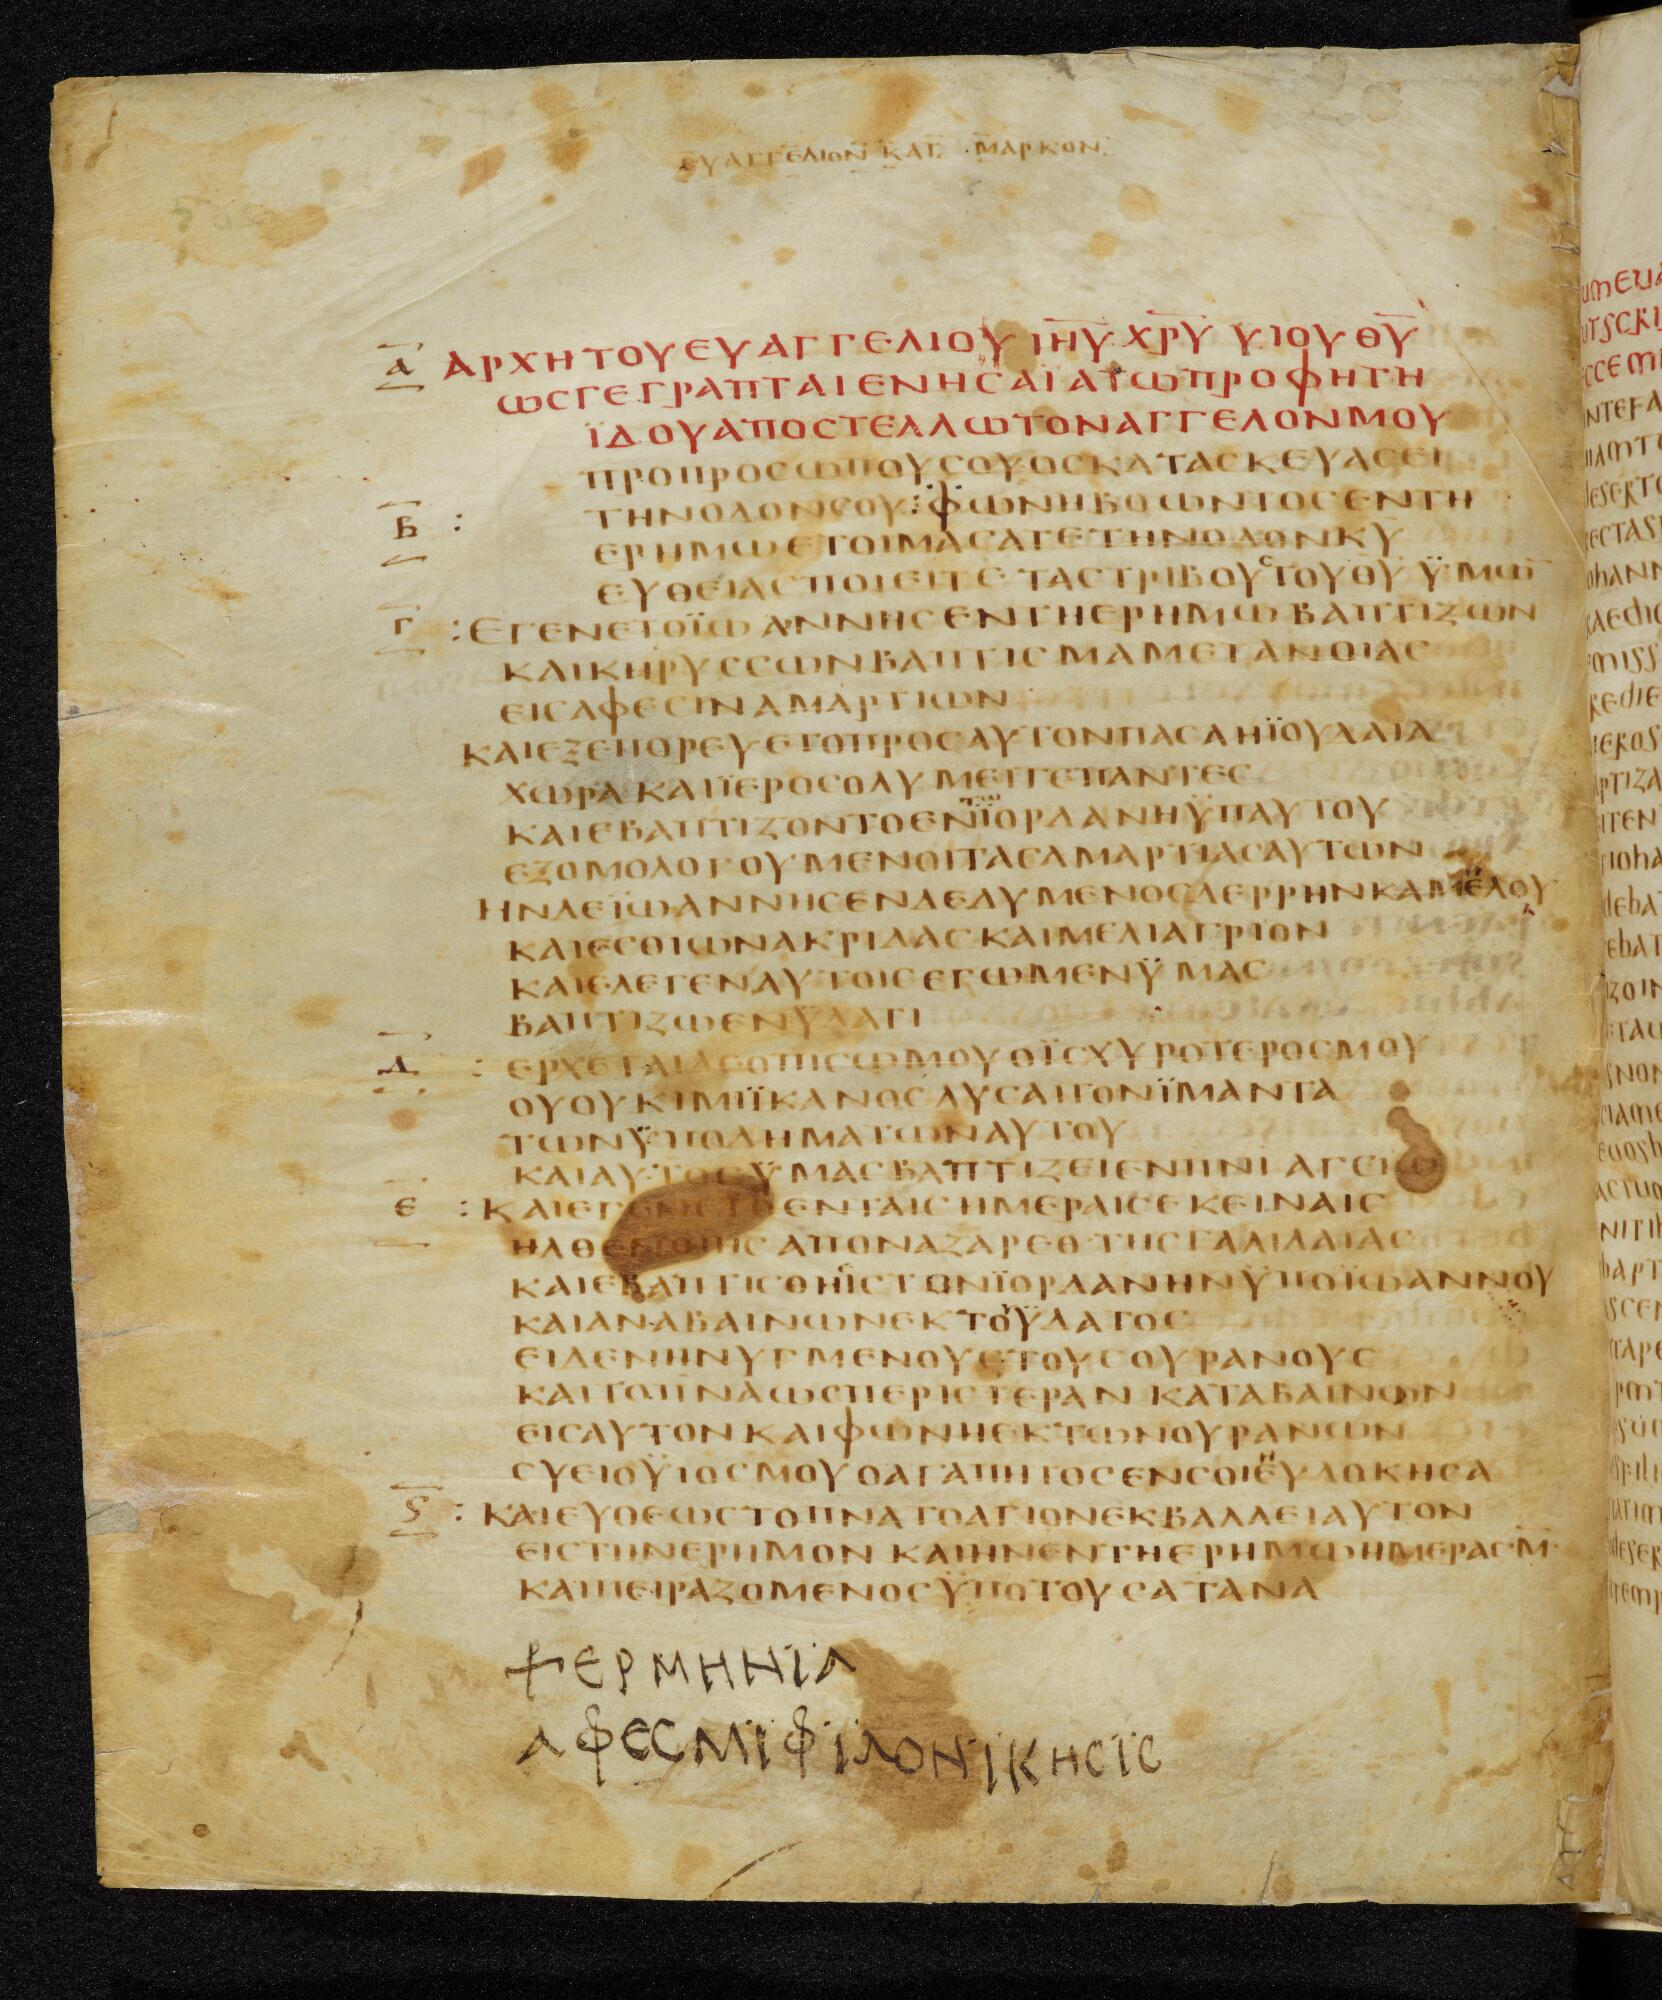 ΕΥΑΓΓΕΛΙΟΝ ΚΑΤ ΜΑΡΚΟΝ
Α ΑΡΧΗΤΟΥΕΥΑΓΓΕΛΙΟΥ ΙΗΥ ΧΡΥ ΥΙΟΥ ΘΥ
ΩϹΓΕΓΡΑΠΤΑΙΕΝΗϹΑΪΑΤΩΠΡΟΦΗΤΗ
ΪΔΟΥΑΠΟϹΤΕΛΛΩΤΟΝΑΓΓΕΛΟΝΜΟΥ
ΠΡΟΠΡΟϹΩΠΟΥϹΟΥΟϹΚΑΤΑϹΚΕΥΑϹΕΙ
Β : ΤΗΝΟΔΟΝϹΟΥ:ΦΩΝΗΒΟΩΝΤΟϹΕΝΤΗ
ΕΡΗΜΩΕΤΟΙΜΑϹΑΤΕΤΗΝΟΔΟΝΚΥ
ΕΥΘΕΙΑϹΠΟΙΕΙΤΕ ΤΑϹΤΡΙΒΟΥϹΤΟΥΘΥ ΫΜΩ
Γ :ΕΓΕΝΕΤΟΪΩΑΝΝΗϹΕΝΤΗΕΡΗΜΩΒΑΠΤΙΖΩΝ
ΚΑΙΚΗΡΥϹϹΩΝΒΑΠΤΙϹΜΑΜΕΤΑΝΟΙΑϹ
ΕΙϹΑΦΕϹΙΝΑΜΑΡΤΙΩΝ
ΚΑΙΕΞΕΠΟΡΕΥΕΤΟΠΡΟϹΑΥΤΟΝΠΑϹΑΗΪΟΥΔΑΙΑ
ΧΩΡΑ ΚΑΙΪΕΡΟϹΟΛΥΜΕΙΤΕΠΑΝΤΕϹ
ΚΑΙΕΒΑΠΤΙΖΟΝΤΟΕΝΤΩΪΟΡΔΑΝΗΫΠΑΥΤΟΥ
ΕΞΟΜΟΛΟΓΟΥΜΕΝΟΙΤΑϹΑΜΑΡΤΙΑϹΑΥΤΩΝ
ΗΝΔΕΪΩΑΝΝΗϹΕΝΔΕΔΥΜΕΝΟϹΔΕΡΡΗΝΚΑΜΗΛΟΥ
ΚΑΙΕϹΘΙΩΝΑΚΡΙΔΑϹΚΑΙΜΕΛΙΑΓΡΙΟΝ
ΚΑΙΕΛΕΓΕΝΑΥΤΟΙϹΕΓΩΜΕΝΫΜΑϹ
ΒΑΠΤΙΖΩΕΝΫΔΑΤΙ
Δ : ΕΡΧΕΤΑΙΔΕΟΠΙϹΩΜΟΥΟΪϹΧΥΡΟΤΕΡΟϹΜΟΥ
ΟΥΟΥΚΙΜΙΪΚΑΝΟϹΛΥϹΑΙΤΟΝΪΜΑΝΤΑ
ΤΩΝΫΠΟΔΗΜΑΤΩΝΑΥΤΟΥ
ΚΑΙΑΥΤΟϹΫΜΑϹΒΑΠΤΙΖΕΙΕΝΠΝΙ ΑΓΕΙΩ
Ε :ΚΑΙΕΓΕΝΕΤΟΕΝΤΑΙϹΗΜΕΡΑΙϹΕΚΕΙΝΑΙϹ
ΗΛΘΕΝΟΙΗϹ ΑΠΟΝΑΖΑΡΕΘ ΤΗϹΓΑΛΙΛΑΙΑϹ
ΚΑΙΕΒΑΠΤΙϹΘΗΕΙϹΤΟΝΪΟΡΔΑΝΗΝΫΠΟΪΩΑΝΝΟΥ
ΚΑΙΑΝΑΒΑΙΝΩΝΕΚΤΟΥΫΔΑΤΟϹ
ΕΙΔΕΝΗΝΥΓΜΕΝΟΥϹΤΟΥϹΟΥΡΑΝΟΥϹ
ΚΑΙΤΟΠΝΑΩϹΠΕΡΙϹΤΕΡΑΝ ΚΑΤΑΒΑΙΝΩΝ
ΕΙϹΑΥΤΟΝΚΑΙΦΩΝΗΕΚΤΩΝΟΥΡΑΝΩΝ
ϹΥΕΙΟΫΙΟϹΜΟΥΟΑΓΑΠΗΤΟϹΕΝϹΟΙΗΥΔΟΚΗϹΑ
Ϛ :ΚΑΙΕΥΘΕΩϹΤΟΠΝΑΤΟΑΓΙΟΝΕΚΒΑΛΛΕΙΑΥΤΟΝ
ΕΙϹΤΗΝΕΡΗΜΟΝ ΚΑΙΗΝΕΝΤΗΕΡΗΜΩΗΜΕΡΑϹ·Μ·
ΚΑΙΠΕΙΡΑΖΟΜΕΝΟϹΫΠΟΤΟΥϹΑΤΑΝΑ
ΕΡΜΗΝΪΑ
ΑΦΕϹΜΪΦΪΛΟΝΪΚΗϹΪϹ